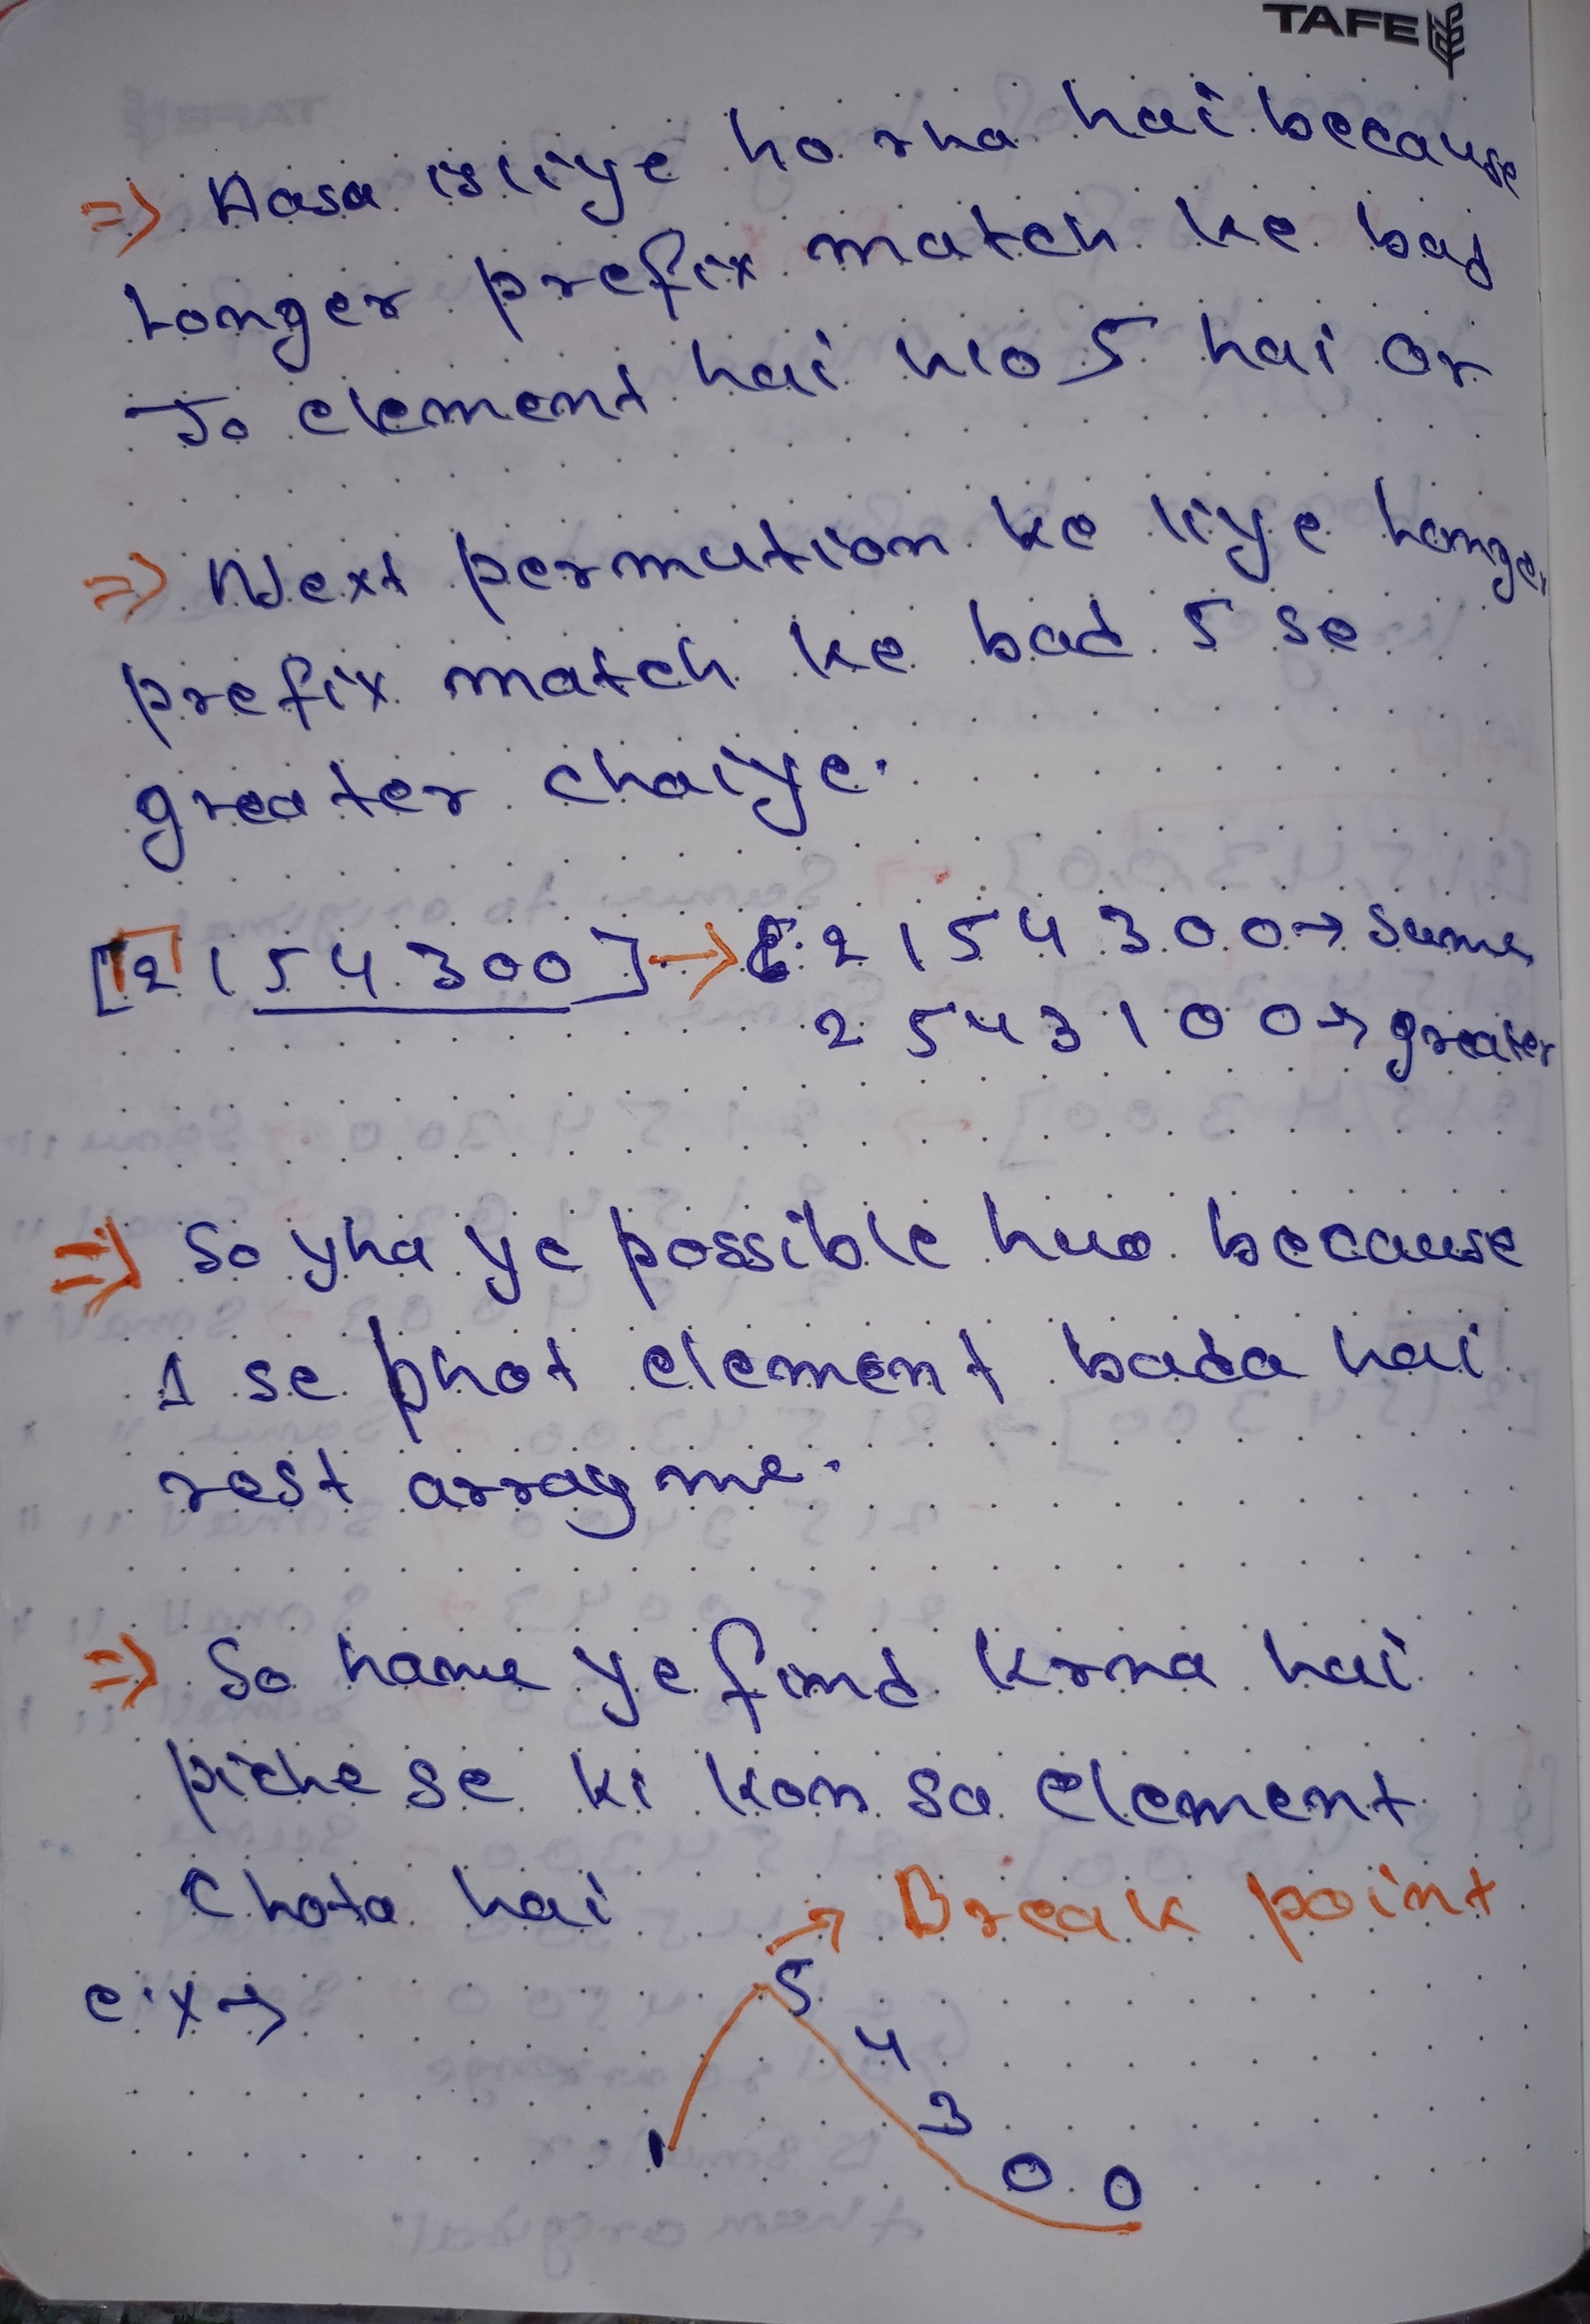 TAFE
=> Aasa isliye ho rha hai because
Longer prefix match ke bad
Jo element hai wo 5 hai or
=> Next permution ke liye Longer
prefix match ke bad 5 se
greater chaiye.
[2 1 5 4 3 0 0] → 2 1 5 4 3 0 0 → Same
2 5 4 3 1 0 0 → greater
=> So yha ye possible huo because
1 se phot element bada hai
rest array me.
=> So hame ye find krna hai
piche se ki kon sa element
chota hai
→ Break point
e.x →
5
4
3
1
0 0